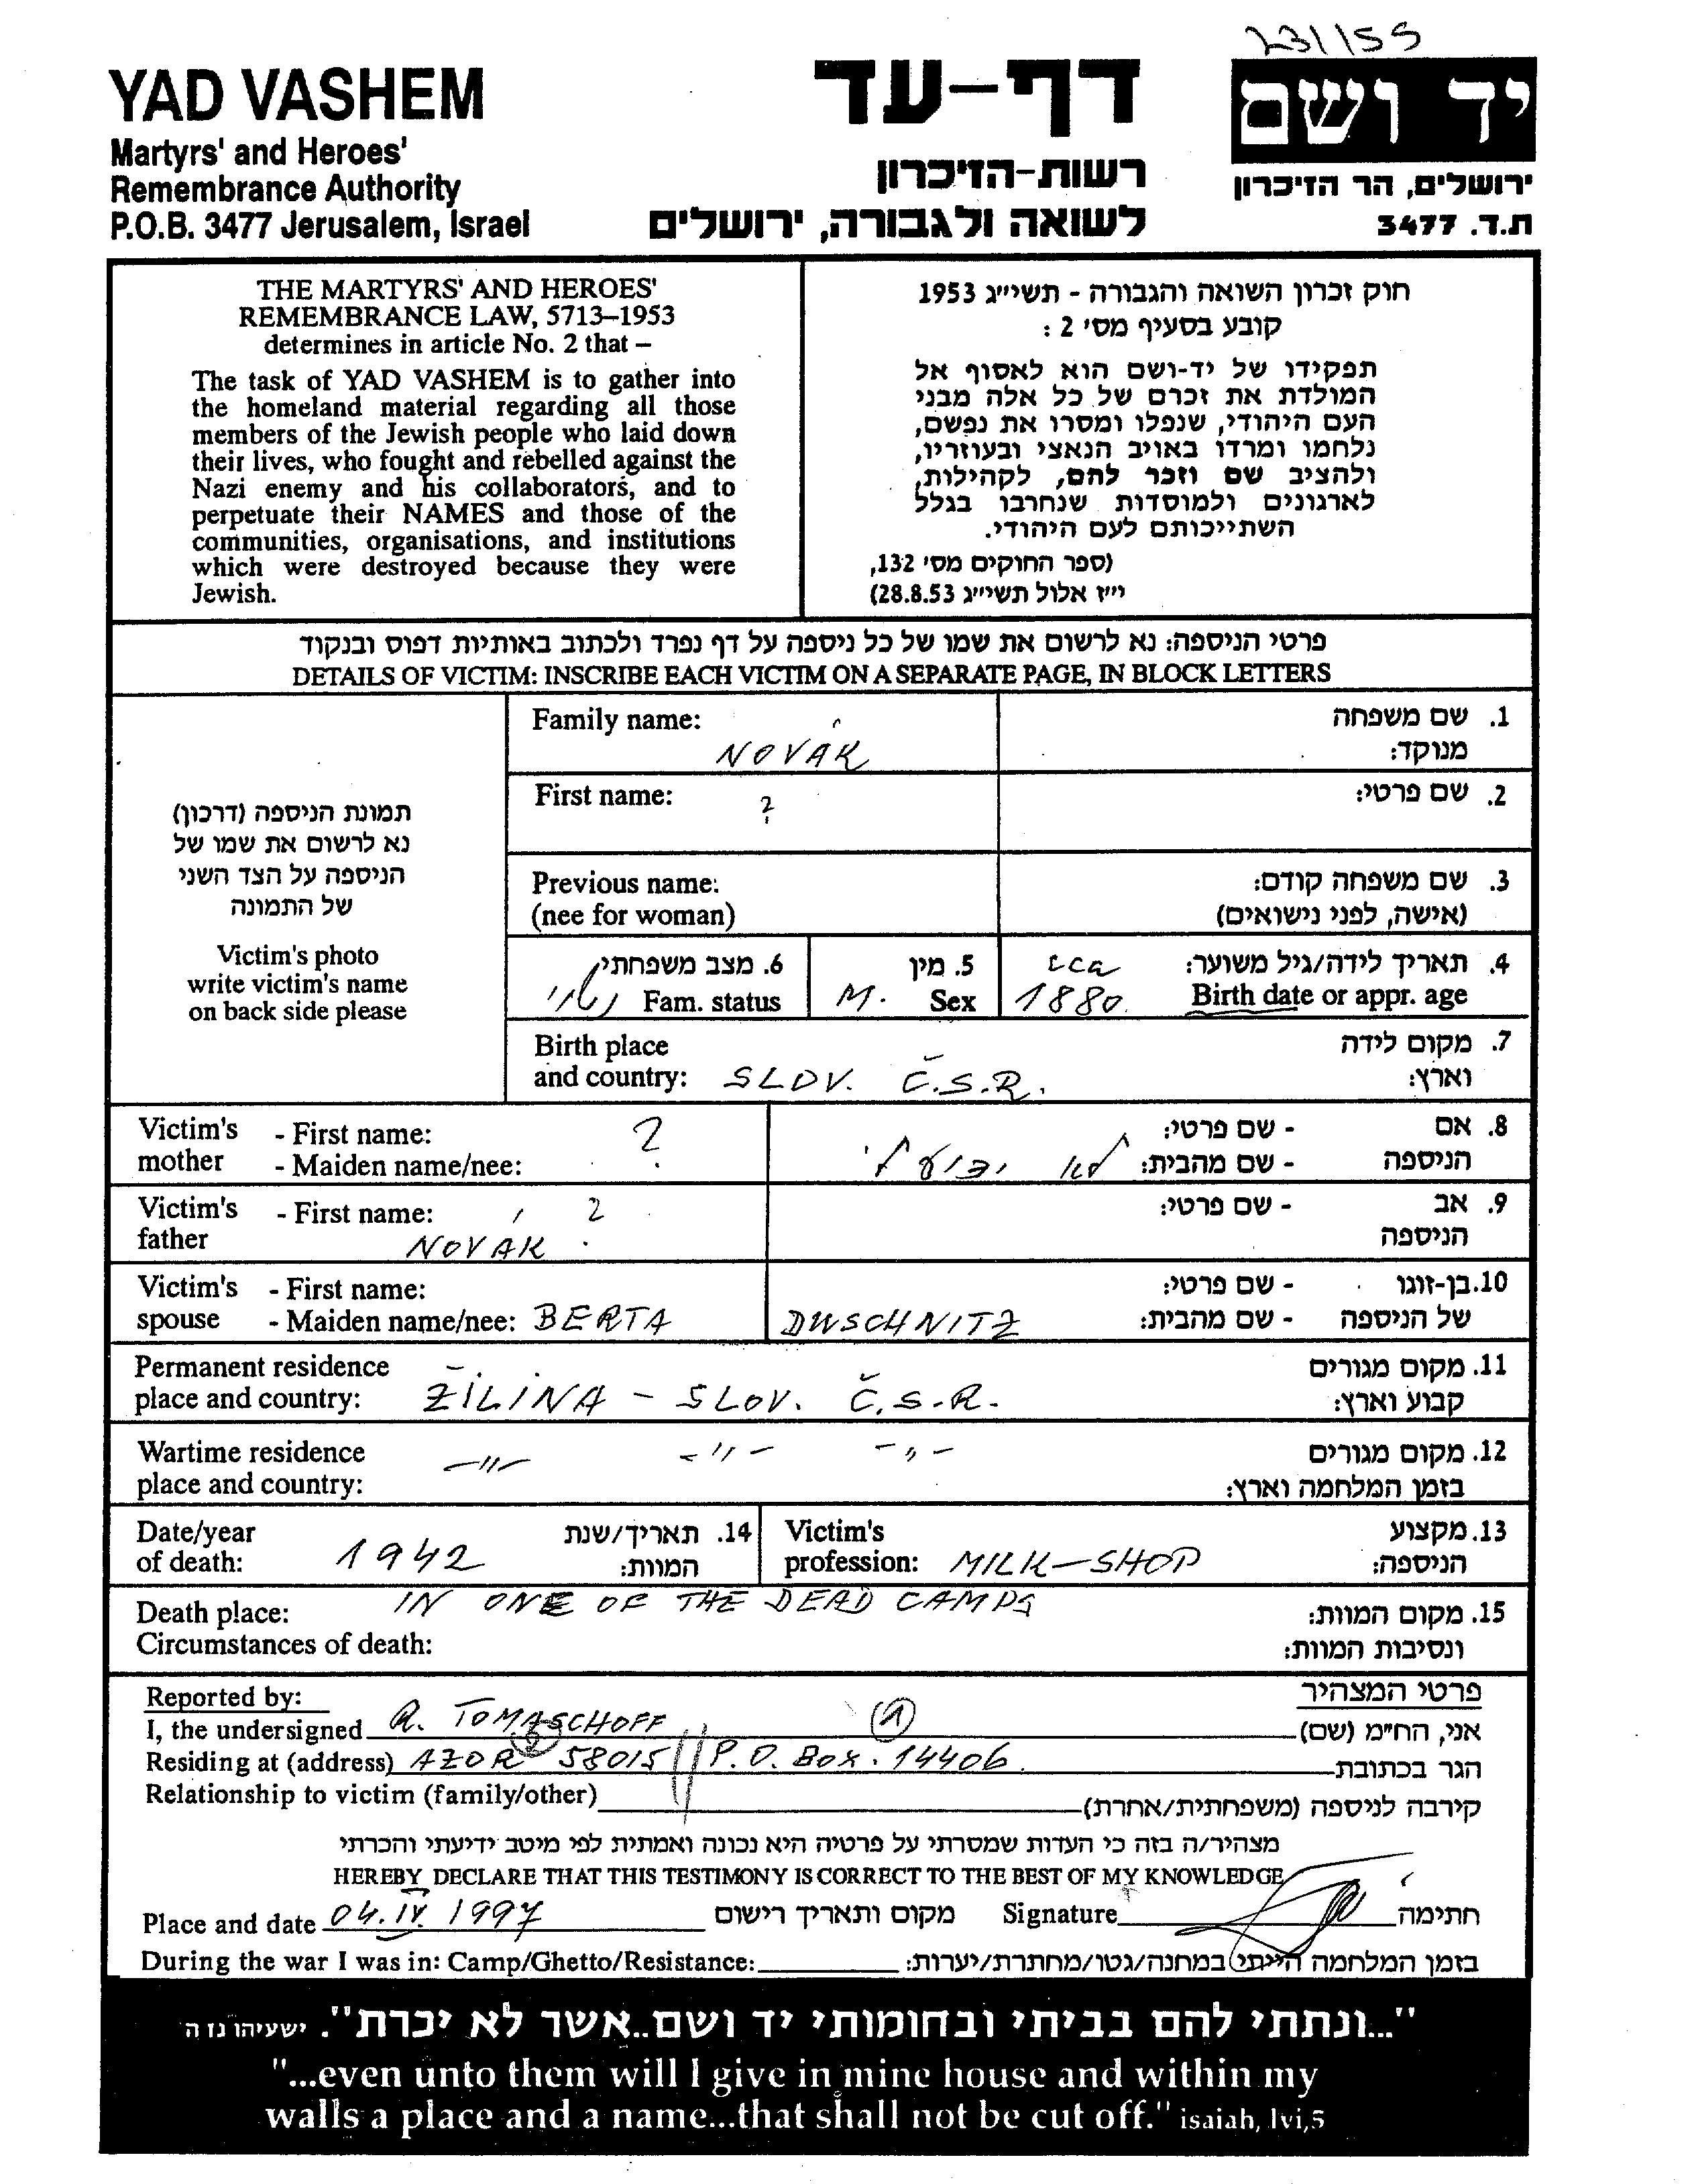 231155
YAD VASHEM
Martyrs' and Heroes'
Remembrance Authority
P.O.B. 3477 Jerusalem, Israel
דף-עד
רשות-הזיכרון
לשואה ולגבורה, ירושלים
יד ושם
ירושלים, הר הזיכרון
ת.ד. 3477
THE MARTYRS' AND HEROES'
REMEMBRANCE LAW, 5713–1953
determines in article No. 2 that –
The task of YAD VASHEM is to gather into
the homeland material regarding all those
members of the Jewish people who laid down
their lives, who fought and rebelled against the
Nazi enemy and his collaborators, and to
perpetuate their NAMES and those of the
communities, organisations, and institutions
which were destroyed because they were
Jewish.
חוק זכרון השואה והגבורה - תשי"ג 1953
קובע בסעיף מס' 2 :
תפקידו של יד-ושם הוא לאסוף אל
המולדת את זכרם של כל אלה מבני
העם היהודי, שנפלו ומסרו את נפשם,
נלחמו ומרדו באויב הנאצי ובעוזריו,
ולהציב שם וזכר להם, לקהילות,
לארגונים ולמוסדות שנחרבו בגלל
השתייכותם לעם היהודי.
(ספר החוקים מס' 132,
י"ז אלול תשי"ג 28.8.53)
פרטי הניספה: נא לרשום את שמו של כל ניספה על דף נפרד ולכתוב באותיות דפוס ובנקוד
DETAILS OF VICTIM: INSCRIBE EACH VICTIM ON A SEPARATE PAGE, IN BLOCK LETTERS
תמונת הניספה (דרכון)
נא לרשום את שמו של
הניספה על הצד השני
של התמונה
Victim's photo
write victim's name
on back side please
Family name: NOVÁK 1. שם משפחה
מנוקד:
First name: ? 2. שם פרטי:
Previous name: 3. שם משפחה קודם:
(nee for woman) (אישה, לפני נישואים)
6. מצב משפחתי 5. מין cca 4. תאריך לידה/גיל משוער:
נשוי Fam. status M. Sex 1880. Birth date or appr. age
Birth place 7. מקום לידה
and country: SLOV. Č.S.R. וארץ:
Victim's - First name: ? - שם פרטי: 8. אם
mother - Maiden name/nee: לא - שם מהבית: הניספה
Victim's - First name: ? - שם פרטי: 9. אב
father NOVÁK הניספה
Victim's - First name: - שם פרטי: 10. בן-זוגו
spouse - Maiden name/nee: BERTA DUSCHNITZ - שם מהבית: של הניספה
Permanent residence 11. מקום מגורים
place and country: ŽILINA - SLOV. Č.S.R. קבוע וארץ:
Wartime residence -"- -"- 12. מקום מגורים
place and country: -"- בזמן המלחמה וארץ:
Date/year 14. תאריך/שנת Victim's 13. מקצוע
of death: 1942 המוות: profession: MILK-SHOP הניספה:
Death place: IN ONE OF THE DEAD CAMPS 15. מקום המוות:
Circumstances of death: ונסיבות המוות:
Reported by: פרטי המצהיר
I, the undersigned R. TOMASCHOFF (1) אני, הח"מ (שם)
Residing at (address) AZOR 58015 // P.O. BOX. 14406 הגר בכתובת
Relationship to victim (family/other) קירבה לניספה (משפחתית/אחרת)
מצהיר/ה בזה כי העדות שמסרתי על פרטיה היא נכונה ואמתית לפי מיטב ידיעתי והכרתי
HEREBY DECLARE THAT THIS TESTIMONY IS CORRECT TO THE BEST OF MY KNOWLEDGE
Place and date 04.IV.1997 מקום ותאריך רישום Signature חתימה
During the war I was in: Camp/Ghetto/Resistance: בזמן המלחמה הייתי במחנה/גטו/מחתרת/יערות:
"...ונתתי להם בביתי ובחומותי יד ושם..אשר לא יכרת". ישעיהו נו ה
"...even unto them will I give in mine house and within my
walls a place and a name...that shall not be cut off." isaiah, lvi,5